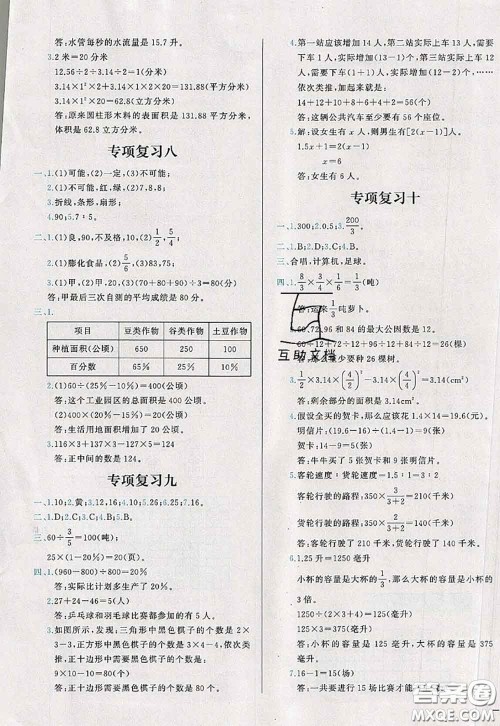 答:水管每秒的水流量是 15.7 升。
3.2 米=20 分米
12.56÷2÷3.14÷2=1(分米)
3.14×1²×2+3.14×1×2×20=131.88(平方分米)
3.14×1²×20=62.8(立方分米)
答:原来圆柱形木料的表面积是 131.88 平方分米,
体积是 62.8 立方分米。
专项复习八
一、1.(1)可能,(2)一定,(3)不可能;
2.(1)不可能,红,绿;(2)7,8,8;
3.折线,条形,扇形;
4.90;5.7∶5。
二、1.(1)良,90,不及格,10,(2)1/2,5/7;
2.(1)膨化食品,(2)5/6,(3)2,2;
3.(1)甲,20,(2)甲,(3)(70+80+90)÷3=80(分)
答:甲最后三次自测的平均成绩是 80 分。
三、1.
项目 豆类作物 谷类作物 土豆作物
种植面积(公顷) 650 250 100
百分数 65% 25% 10%
2.(1)60÷15%=400(公顷)
答:这个工业园区的总面积是 400 公顷。
(2)400×(20%-15%)=20(公顷)
答:生活用地面积增加了 20 公顷。
3.116×3+137×3-127×5=124
答:正中间的数是 124。
专项复习九
一、1.10;2.黄;3.12,16;4.10;5.26;6.25;7.9,16。
二、1.D;2.C;3.C;4.B;5.B。
三、60÷3/5=100(吨);
25×(1-20%)=20(页)。
四、1.(960-800)÷800=20%
答:实际比计划多生产了 20%。
2.27+24-46=5(人)
答:乒乓球和羽毛球比赛都参加的有 5 人。
3.如图所示,三角形中黑色棋子的个数是 2×
3-3,正方形中黑色棋子的个数是 3×4-4,
正十边形中需要黑色棋子的个数是 9×10-
10=80(个)
答:正十边形需要黑色棋子的个数是 80 个。
4.第一站应该增加 14 人,第二站实际上车 13 人,需要
下车 1 人,实际增加 12 人,第三站实际上车 12 人,需
要下车(1+1)人,实际增加 10 人,……
依次类推,加起来就是:
14+12+10+8+6+4+2=56(个)
答:这辆公共汽车至少要有 56 个座位。
5.解:设女生有 x 人,则男生有[2(x-1)]人。
1.5x+1=2(x-1)
x=6
答:女生有 6 人。
专项复习十
一、1.300;2.0.5;3.200/3。
二、1.B;2.D;3.C;4.B。
三、合唱,计算机,足球。
四、1.8/3×3/4×1/6=1/3(吨)
答:运来1/3吨萝卜。
2.60,72,96 和 84 的最大公因数是 12。
60÷12+72÷12+96÷12+84÷12=26(棵)
答:那么至少要种 26 棵树。
3.1/2×3.14×(4/2)²-3.14×(2/2)²=3.14(cm²)
答:剩余部分的面积是 3.14cm²。
4.假设全买的贺卡,那么应该花 1.4×14=19.6(元)。
明信片:(19.6-14.6)÷(1.4-0.9)=10(张)
贺卡:14-10=4(张)
答:牛牛买了 5 张贺卡和 9 张明信片。
5.客轮速度∶货轮速度=1.5∶1=3∶2
客轮行驶的路程:350×3/(3+2)=210(千米)
货轮行驶的路程:350×2/(3+2)=140(千米)
答:客轮行驶了 210 千米,货轮行驶了 140 千米。
6.1.25 升=1250 毫升
小杯的容量是大杯的1/3,那么大杯的容量是小杯的
3 倍。
1250÷(2×3+4)=125(毫升)
125×3=375(毫升)
答:小杯的容量是 125 毫升,大杯的容量是 375
毫升。
7.16-1=15(场)
答:一共要进行 15 场比赛才能
互助文档
答案圈
MXQE.COM